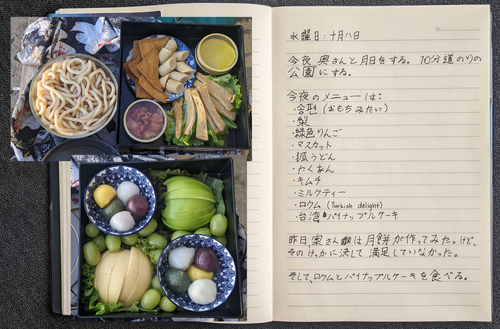 水曜日：十月八日
今夜、奥さんと月見をする。10分道のりの
公園にする。
今夜のメニューは：
・송편（おもちみたい）
・梨
・緑色りんご
・マスカット
・狐うどん
・たくあん
・キムチ
・ミルクティー
・ロクム (Turkish delight)
・台湾パイナップルケーキ
昨日、奥さんは月餅が作ってみた。けど、
そのけっかに決して満足していなかった。
そして、ロクムとパイナップルケーキを食べる。